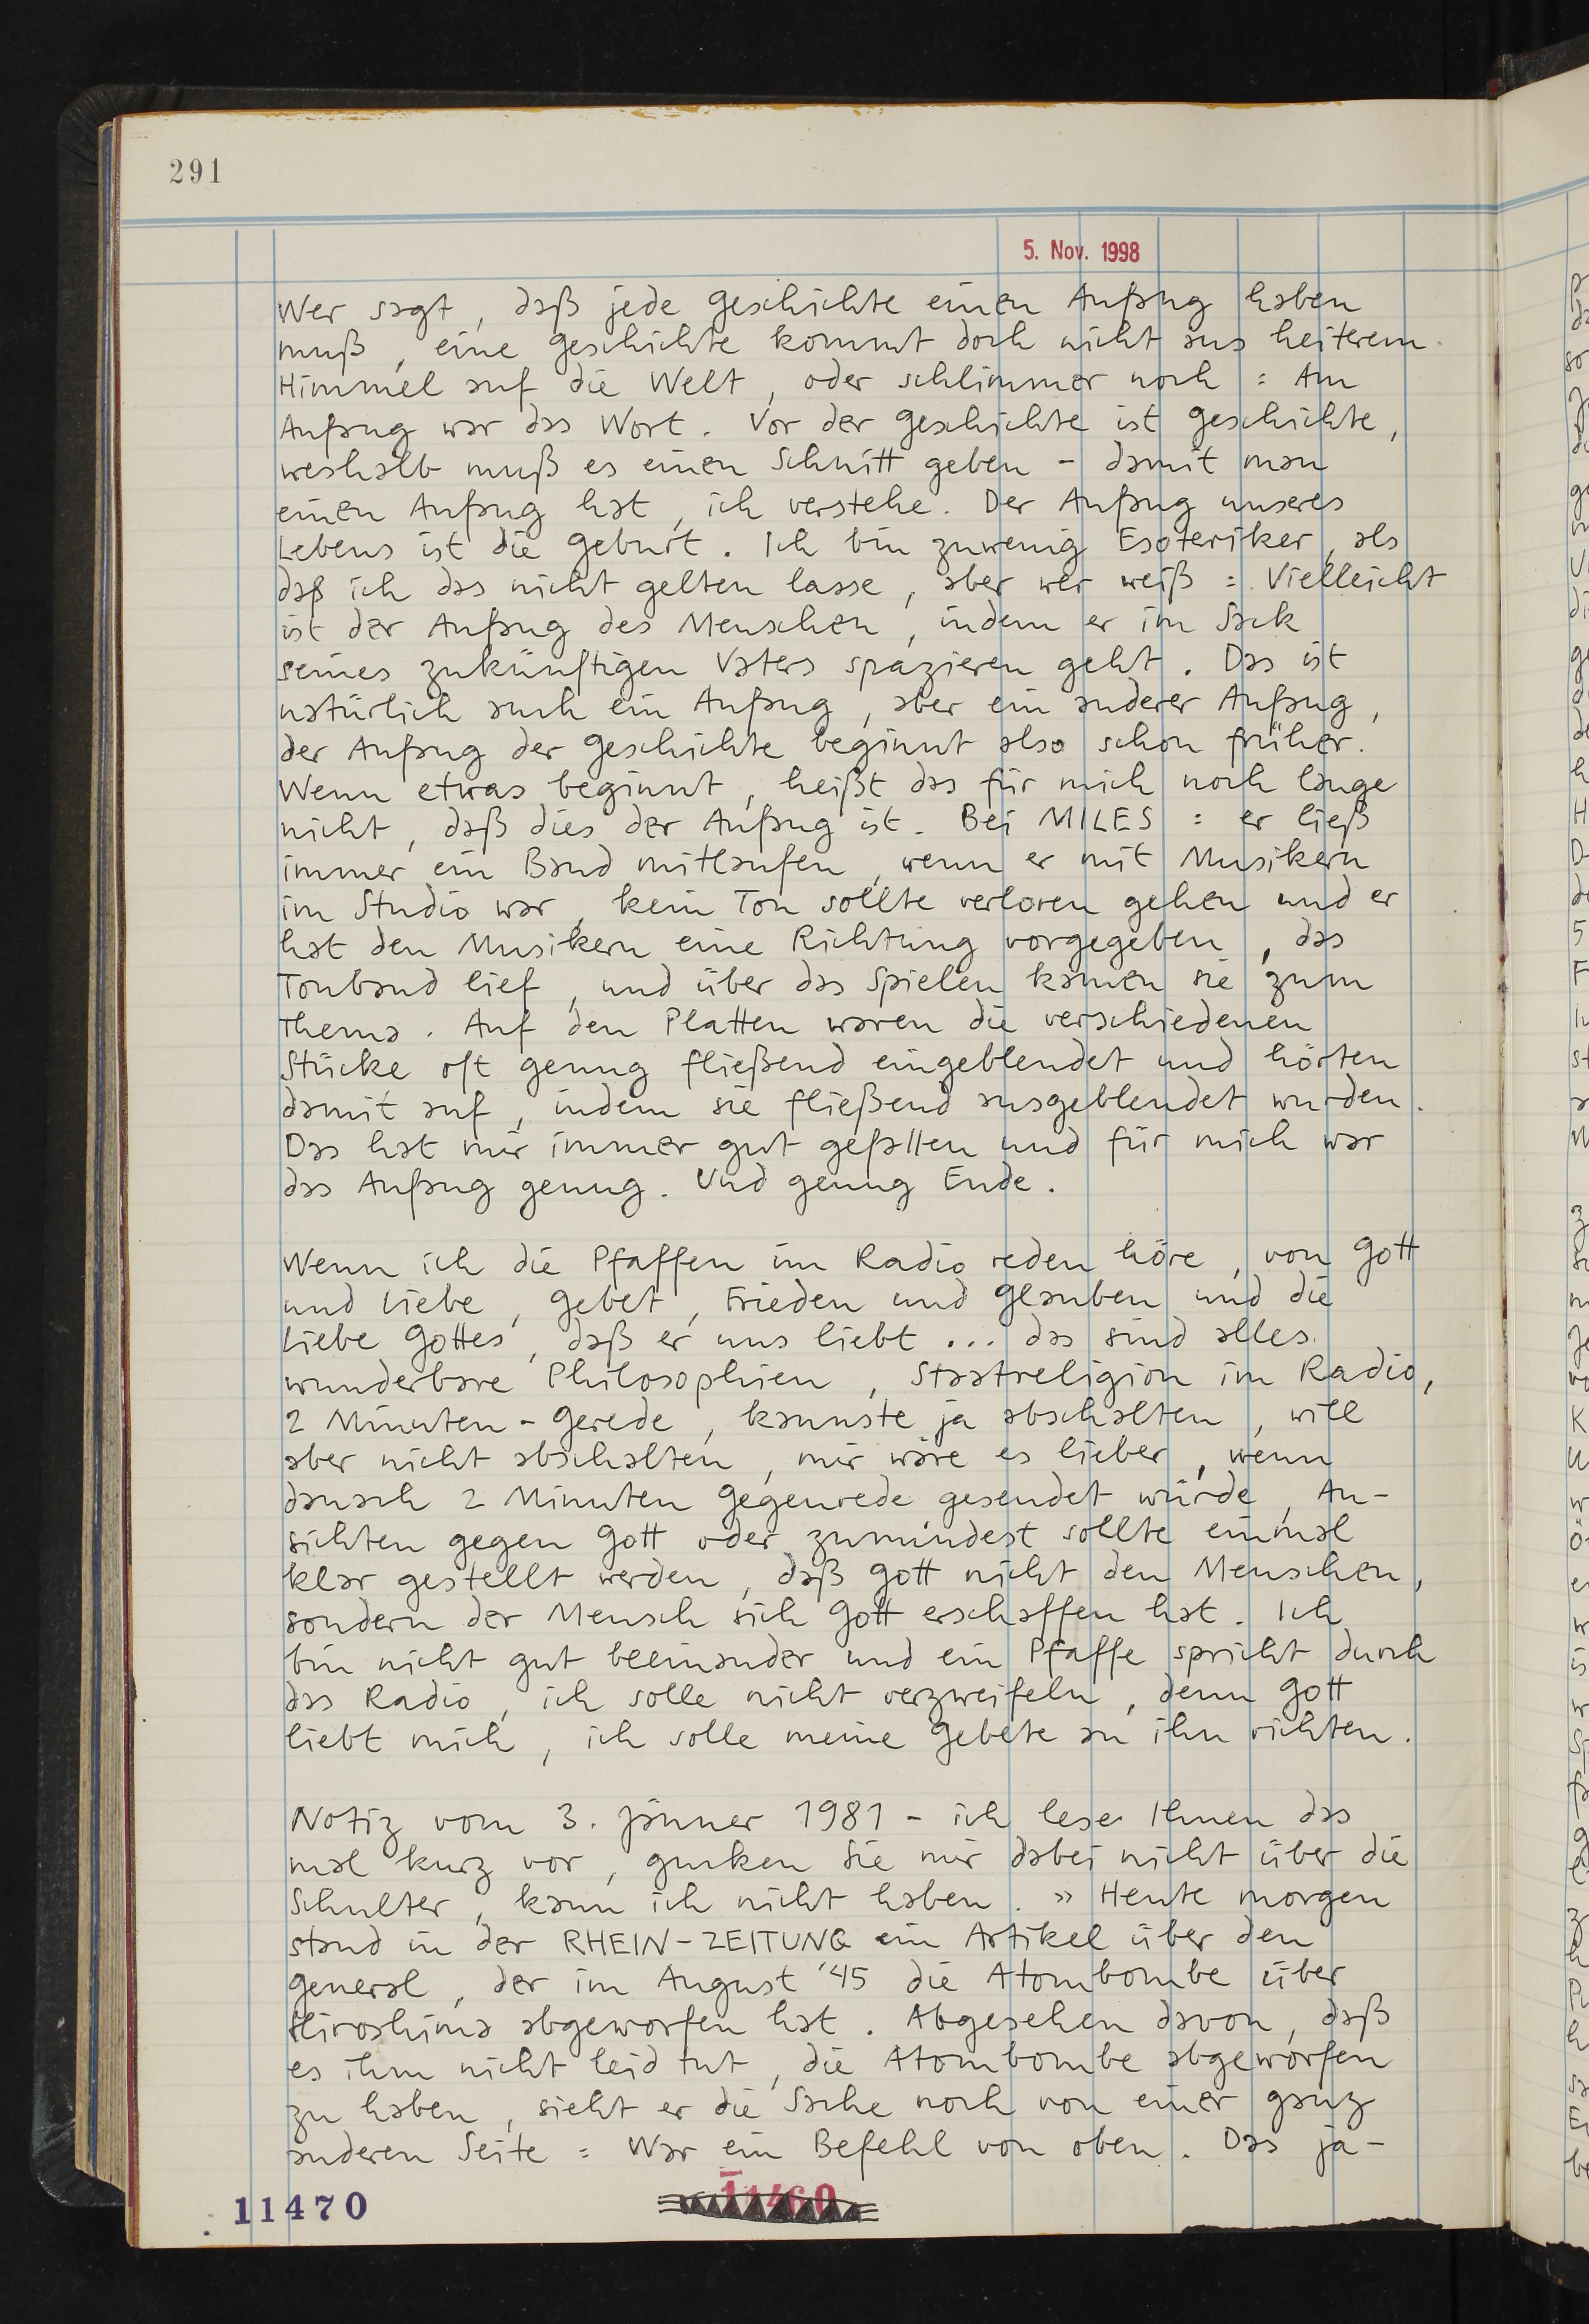 291
5. Nov. 1998
Wer sagt, daß jede Geschichte einen Anfang haben
muß, eine Geschichte kommt doch nicht aus heiterem
Himmel auf die Welt, oder schlimmer noch: Am
Anfang war das Wort. Vor der Geschichte ist Geschichte,
weshalb muß es einen Schnitt geben - damit man
einen Anfang hat, ich verstehe. Der Anfang unseres
Lebens ist die Geburt. Ich bin zuwenig Esoteriker, als
daß ich das nicht gelten lasse, aber wer weiß: Vielleicht
ist der Anfang des Menschen, indem er im Sack
seines zukünftigen Vaters spazieren geht. Das ist
natürlich auch ein Anfang, aber ein anderer Anfang,
der Anfang der Geschichte beginnt also schon früher.
Wenn etwas beginnt, heißt das für mich noch lange
nicht, daß dies der Anfang ist. Bei MILES: er ließ
immer ein Band mitlaufen, wenn er mit Musikern
im Studio war, kein Ton sollte verloren gehen und er
hat den Musikern eine Richtung vorgegeben, das
Tonband lief, und über das Spielen kamen sie zum
Thema. Auf den Platten waren die verschiedenen
Stücke oft genug fließend eingeblendet und hörten
damit auf, indem sie fließend ausgeblendet wurden.
Das hat mir immer gut gefallen und für mich war
das Anfang genug. Und genug Ende.
Wenn ich die Pfaffen im Radio reden höre, von Gott
und Liebe, Gebet, Frieden und Glauben und die
Liebe Gottes, daß er uns liebt ... das sind alles
wunderbare Philosophien, Staatreligion im Radio,
2 Minuten-Gerede, kannste ja abschalten, will
aber nicht abschalten, mir wäre es lieber, wenn
danach 2 Minuten Gegenrede gesendet würde, An-
sichten gegen Gott oder zumindest sollte einmal
klar gestellt werden, daß Gott nicht den Menschen,
sondern der Mensch sich Gott erschaffen hat. Ich
bin nicht gut beeinander und ein Pfaffe spricht durch
das Radio, ich solle nicht verzweifeln, denn Gott
liebt mich, ich solle meine Gebete an ihn richten.
Notiz vom 3. Jänner 1981 - ich lese Ihnen das
mal kurz vor, gucken Sie mir dabei nicht über die
Schulter, kann ich nicht haben. » Heute morgen
stand in der RHEIN-ZEITUNG ein Artikel über den
General, der im August '45 die Atombombe über
Hiroshima abgeworfen hat. Abgesehen davon, daß
es ihm nicht leid tut, die Atombombe abgeworfen
zu haben, sieht er die Sache noch von einer ganz
anderen Seite: War ein Befehl von oben. Das ja-
11470
11460